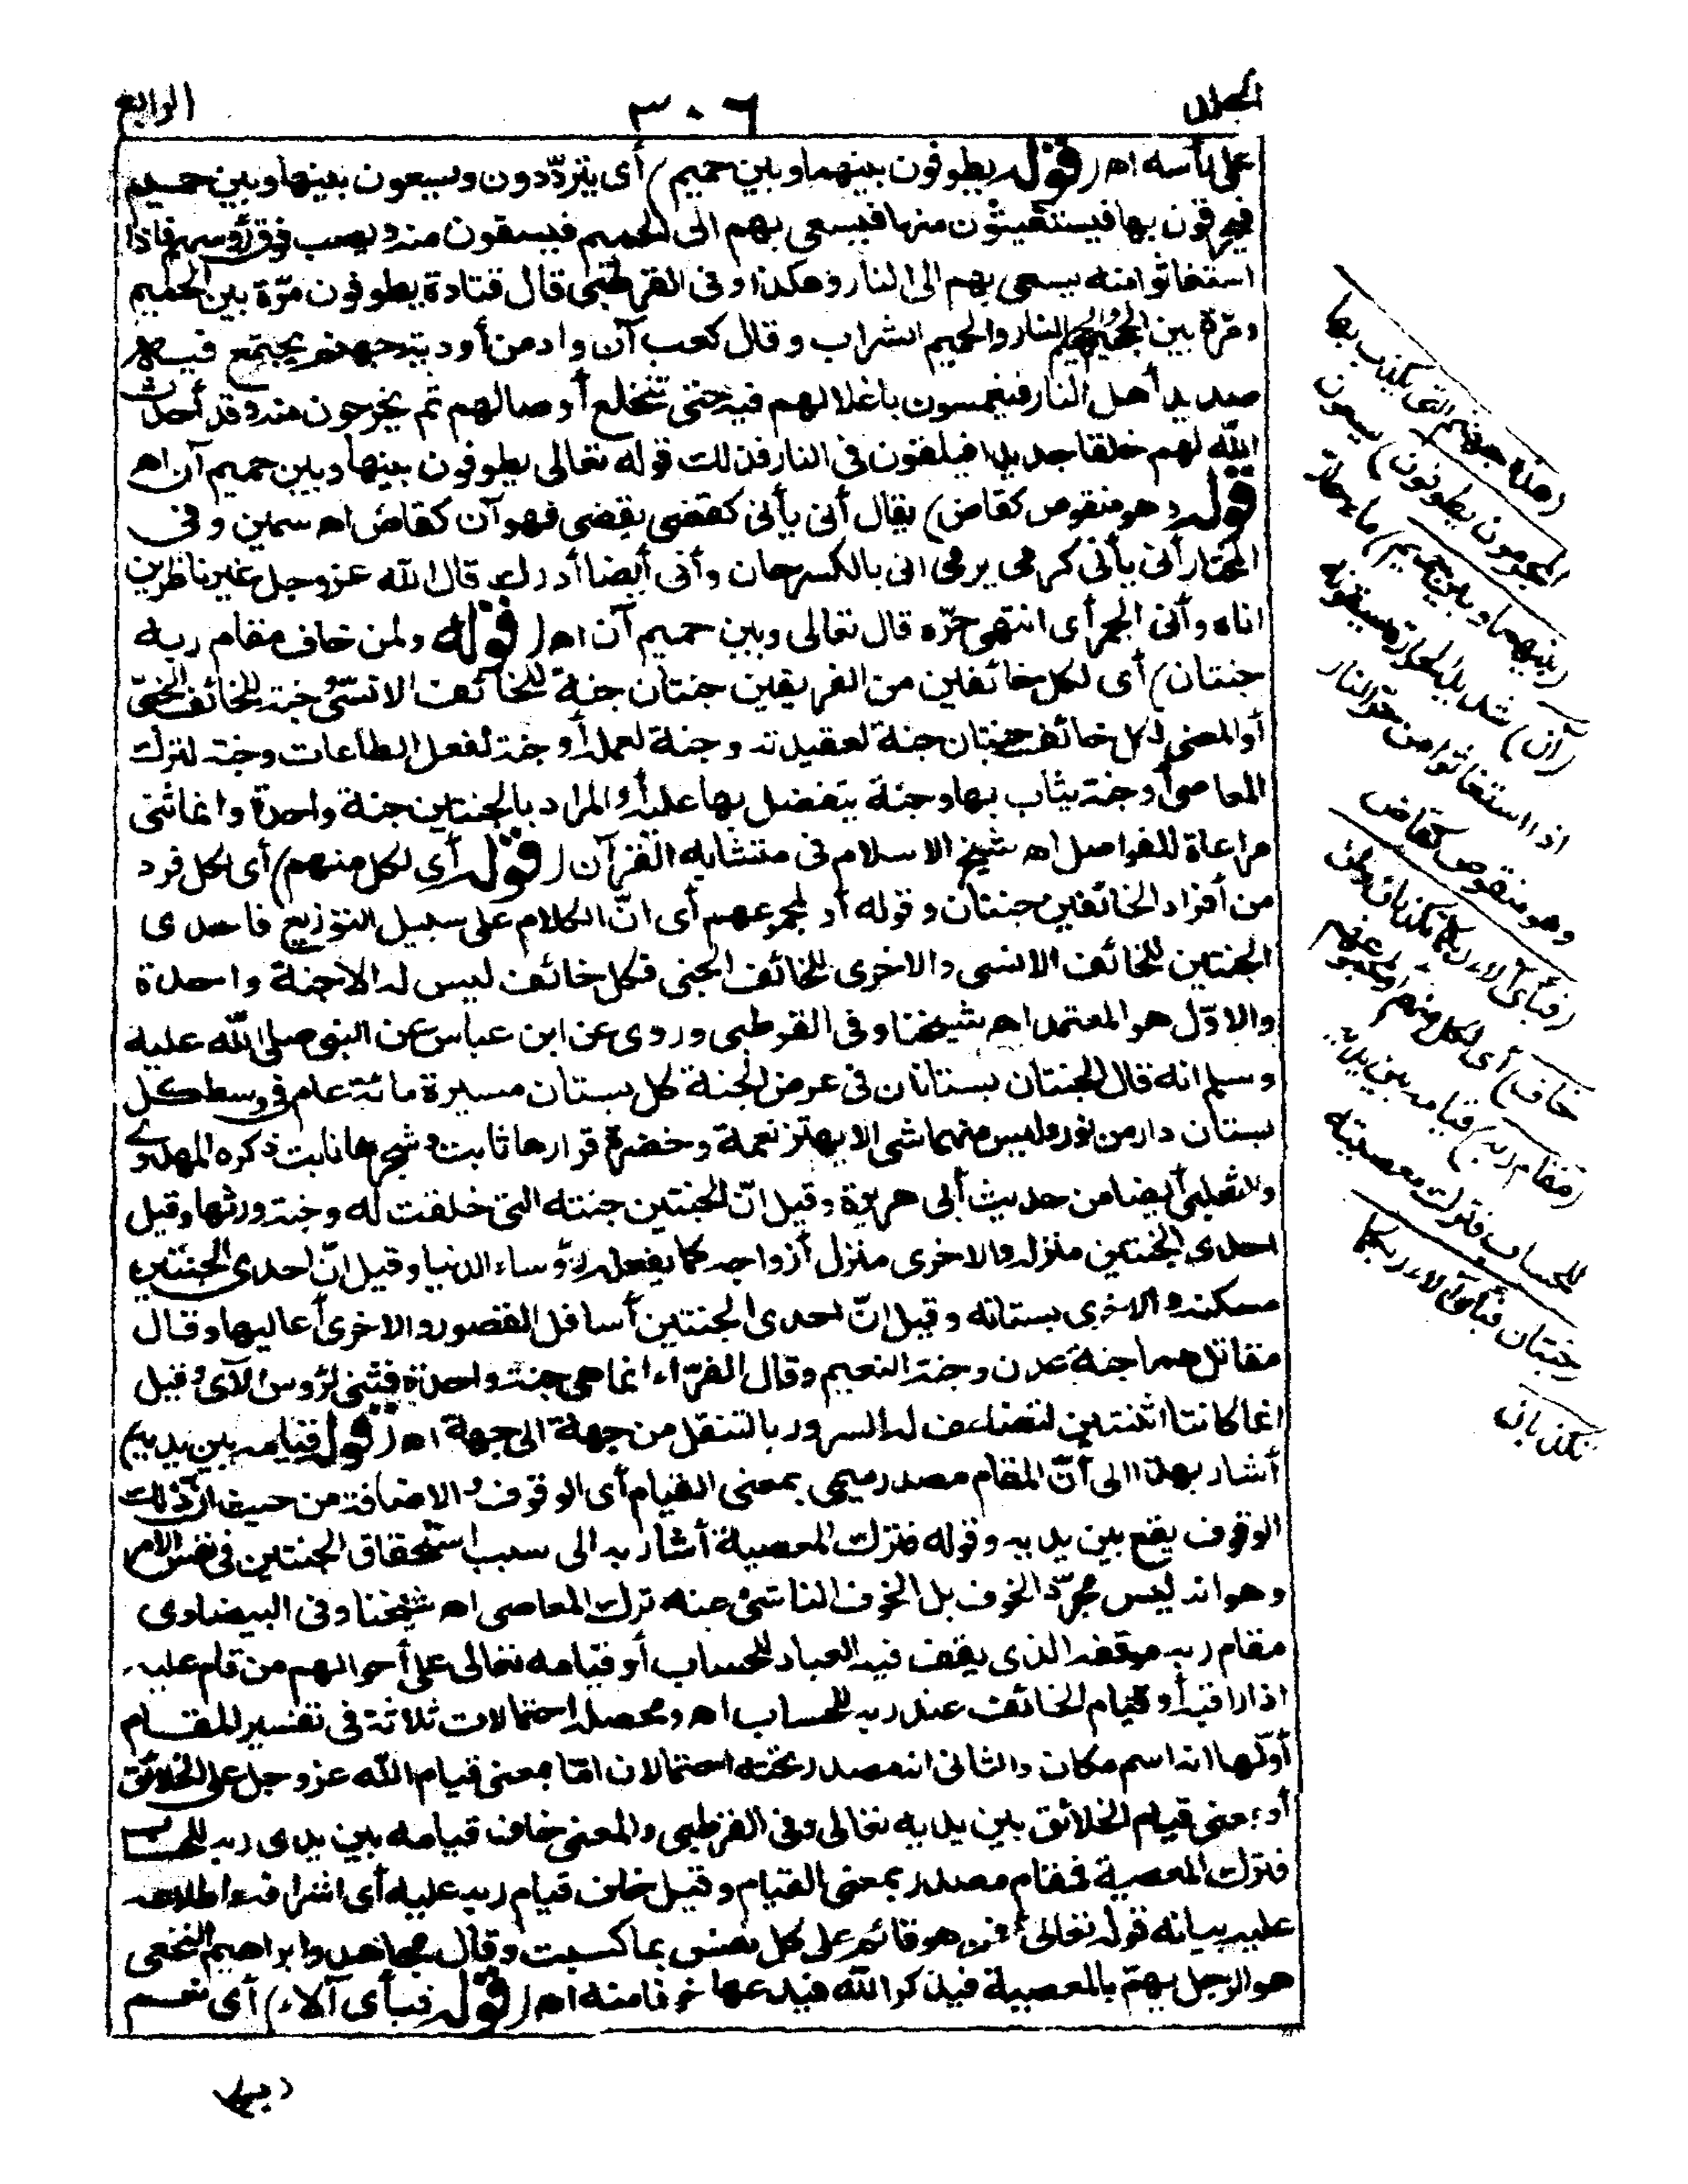 المجلد
٣٠٦
الرابع
على يأسه اه (قوله يطوفون بينها وبين حميم) أى يتردّدون ويسعون بينها وبين حميم
فيحرقون بها فيستغيثون منها فيسعى بهم الى الحميم فيسقون منه ويصب فوق رؤسهم فاذا
استغاثوا منه يسعى بهم الى النار وهكذا وفى القرطبى قال قتادة يطوفون مرّة بين الحميم
ومرّة بين الجحيم والجحيم النار والحميم الشراب وقال كعب آن واد من أودية جهنم يجتمع فيه
صديد أهل النار فيغمسون باغلالهم فيه حتى تنخلع أوصالهم ثم يخرجون منه وقد أحدث
الله لهم خلقا جديدا فيلقون فى النار فذلك قوله تعالى يطوفون بينها وبين حميم آن اه
(قوله وهو منقوص كقاض) يقال أنى يأنى كقضى يقضى فهو آن كقاض اه سمين وفى
المختار أنى يأنى كرمى يرمى انى بالكسر حان وأنى أيضا أدرك قال الله عز وجل غير ناظرين
اناه وأنى الحميم أى انتهى حرّه قال تعالى وبين حميم آن اه (قوله ولمن خاف مقام ربه
جنتان) أى لكل خائفين من الفريقين جنتان جنة للخائف الانسىّ وجنة للخائف الجنىّ
أو المعنى لكل خائف جنتان جنة لعقيدته وجنة لعمله أو جنة لفعل الطاعات وجنة لترك
المعاصى أو جنة يثاب بها وجنة يتفضل بها عليه أو المراد بالجنتين جنة واحدة وانما ثنى
مراعاة للفواصل اه شيخ الاسلام فى متشابه القرآن (قوله أى لكل منهم) أى لكل فرد
من أفراد الخائفين جنتان وقوله أو لمجموعهم أى انّ الكلام على سبيل التوزيع فاحدى
الجنتين للخائف الانسى والاخرى للخائف الجنى فكل خائف ليس له الا جنة واحدة
والاوّل هو المعتمد اه شيخنا وفى القرطبى وروى عن ابن عباس عن النبى صلى الله عليه
وسلم انه قال الجنتان بستانان فى عرض الجنة كل بستان مسيرة مائة عام فى وسط كل
بستان دار من نور وليس منهما شى الا يهتز نعمة وخضرة قرارها ثابت وشجرها نابت ذكره المهدوى
والثعلبى أيضا من حديث أبى هريرة وقيل انّ الجنتين جنته التى خلقت له وجنة ورثها وقيل
احدى الجنتين منزله والاخرى منزل أزواجه كما يفعله رؤساء الدنيا وقيل انّ احدى الجنتين
مسكنه والاخرى بستانه وقيل انّ احدى الجنتين أسافل القصور والاخرى أعاليها وقال
مقاتل هما جنة عدن وجنة النعيم وقال الفرّاء انما هى جنة واحدة فثنى لرؤس الآى وقيل
انما كانتا اثنتين لتضاعف له السرور بالتنقل من جهة الى جهة اه (قوله قيامه بين يديه)
أشار بهذا الى أنّ المقام مصدر ميمى بمعنى القيام أى الوقوف والاضافة من حيث ان ذلك
الوقوف يقع بين يديه وقوله فترك المعصية أشار به الى سبب استحقاق الجنتين فى نفس الامر
وهو انه ليس مجرّد الخوف بل الخوف الناشئ عنه ترك المعاصى اه شيخنا وفى البيضاوى
مقام ربه موقفه الذى يقف فيه العباد للحساب أو قيامه تعالى على أحوالهم من قام عليه
اذا راقبه أو قيام الخائف عند ربه للحساب اه ومحصله احتمالات ثلاثة فى تفسير المقام
أوّلها انه اسم مكان والثانى انه مصدر تحته احتمالان امّا بمعنى قيام الله عز وجل على الخلائق
أو بمعنى قيام الخلائق بين يديه تعالى وفى القرطبى والمعنى خاف قيامه بين يدى ربه للحساب
فترك المعصية فمقام مصدر بمعنى القيام وقيل خاف قيام ربه عليه أى اشرافه واطلاعه
عليه بيانه قوله تعالى أفمن هو قائم على كل نفس بما كسبت وقال مجاهد وابراهيم النخعى
هو الرجل يهمّ بالمعصية فيذكر الله فيدعها خوفا منه اه (قوله فبأى آلاء) أى نعم
(هذه جهنم التى يكذب بها
المجرمون يطوفون) يسعون
(بينها وبين حميم) ماء حار
(آن) شديد الحرارة يسقونه
اذا استغاثوا من حر النار
وهو منقوص كقاض
(فبأى آلاء ربكما تكذبان ولمن
خاف) أى لكل منهم أو لمجموعهم
(مقام ربه) قيامه بين يديه
للحساب فترك معصيته
(جنتان فبأى آلاء ربكما
تكذبان